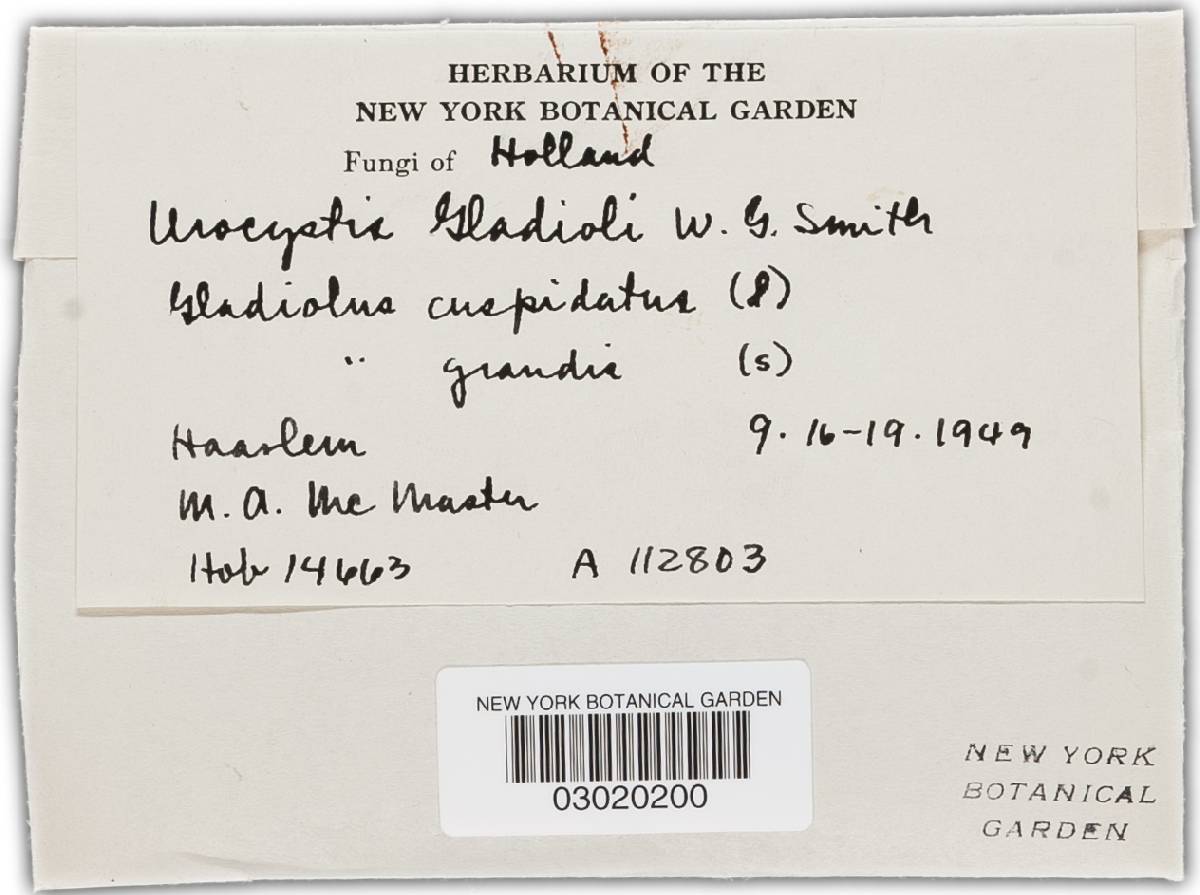 HERBARIUM OF THE
NEW YORK BOTANICAL GARDEN
Fungi of Holland
Urocystis Gladioli W. G. Smith
Gladiolus cuspidatus (l)
" grandis (s)
Haarlem 9. 16-19. 1949
M. A. McMaster
Hob 14663 A 112803
NEW YORK BOTANICAL GARDEN
03020200
NEW YORK
BOTANICAL
GARDEN